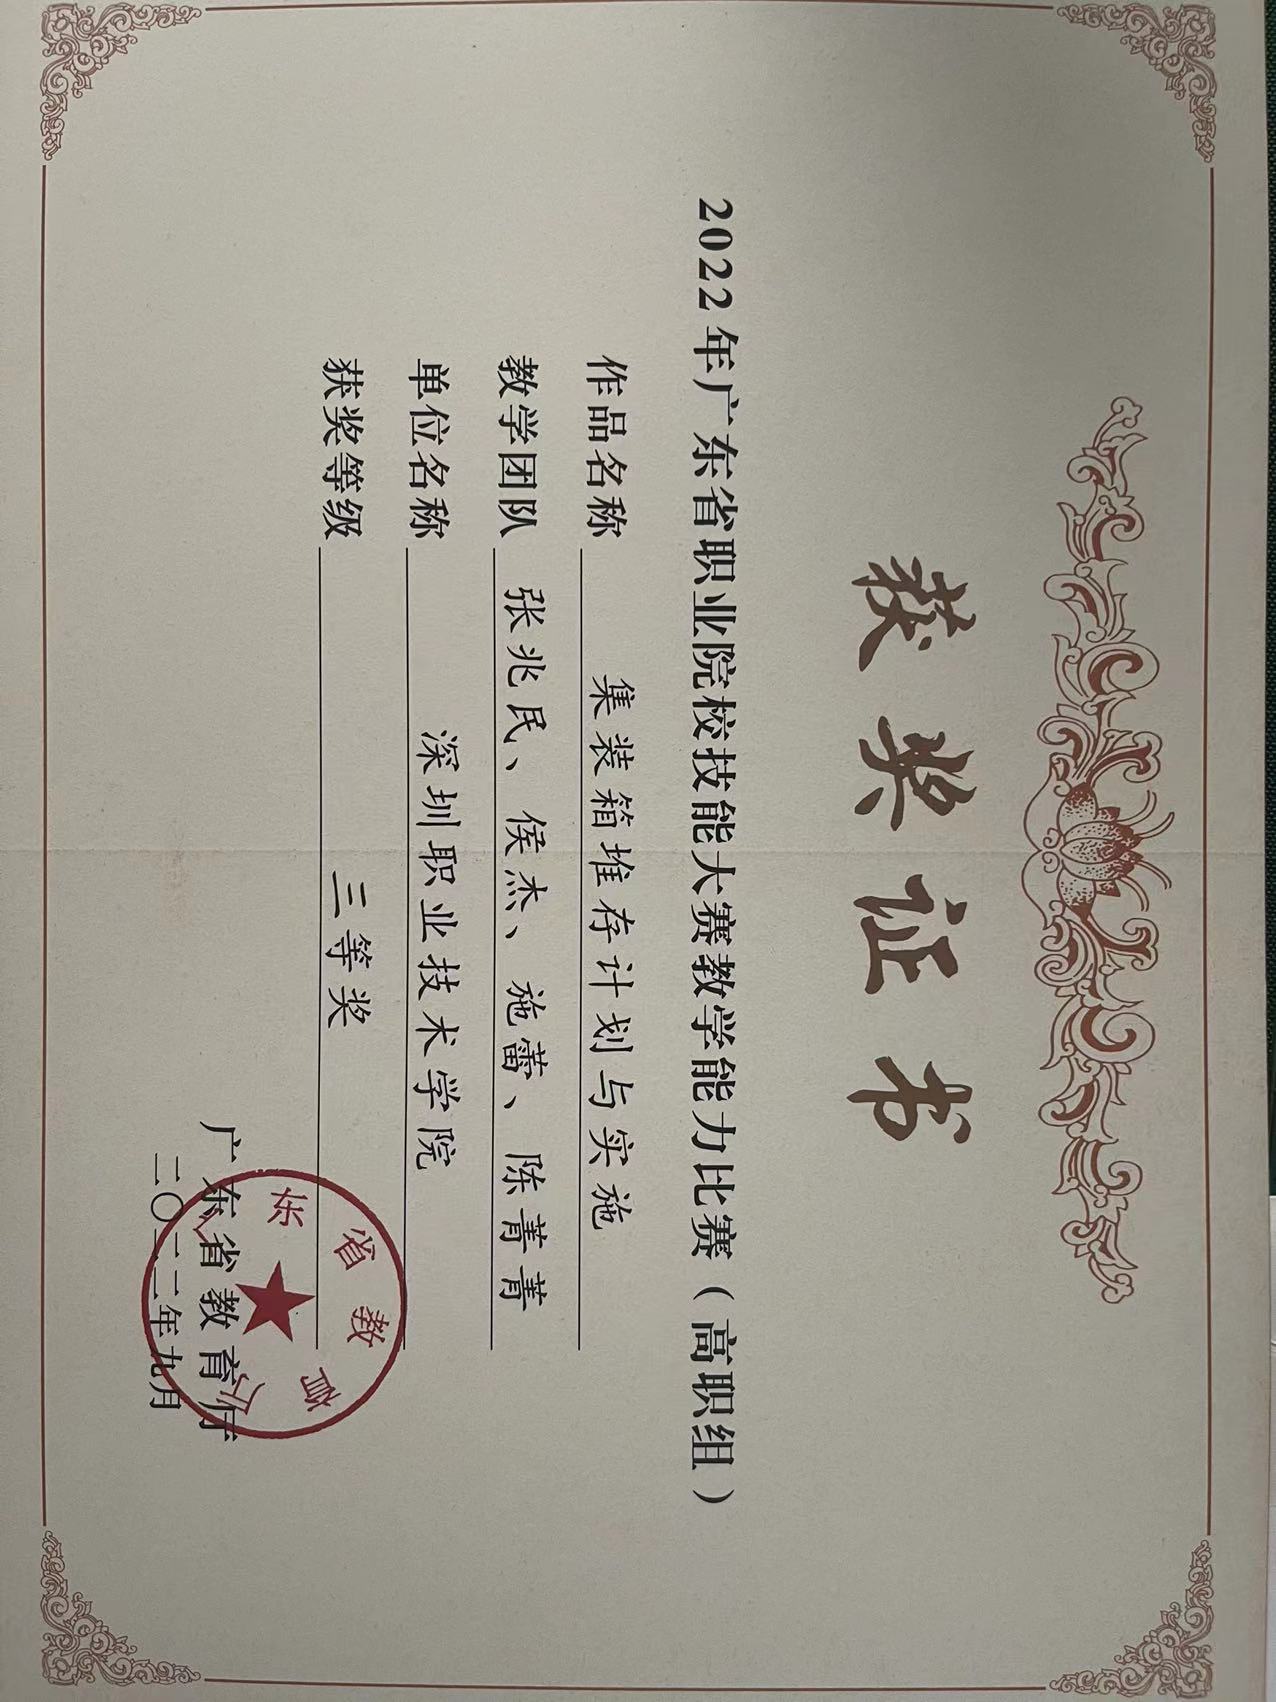 获奖证书
2022年广东省职业院校技能大赛教学能力比赛（高职组）
作品名称 集装箱堆存计划与实施
教学团队 张兆民、侯杰、施蕾、陈菁菁
单位名称 深圳职业技术学院
获奖等级 三等奖
广东省教育厅
二〇二二年九月
广东省教育厅